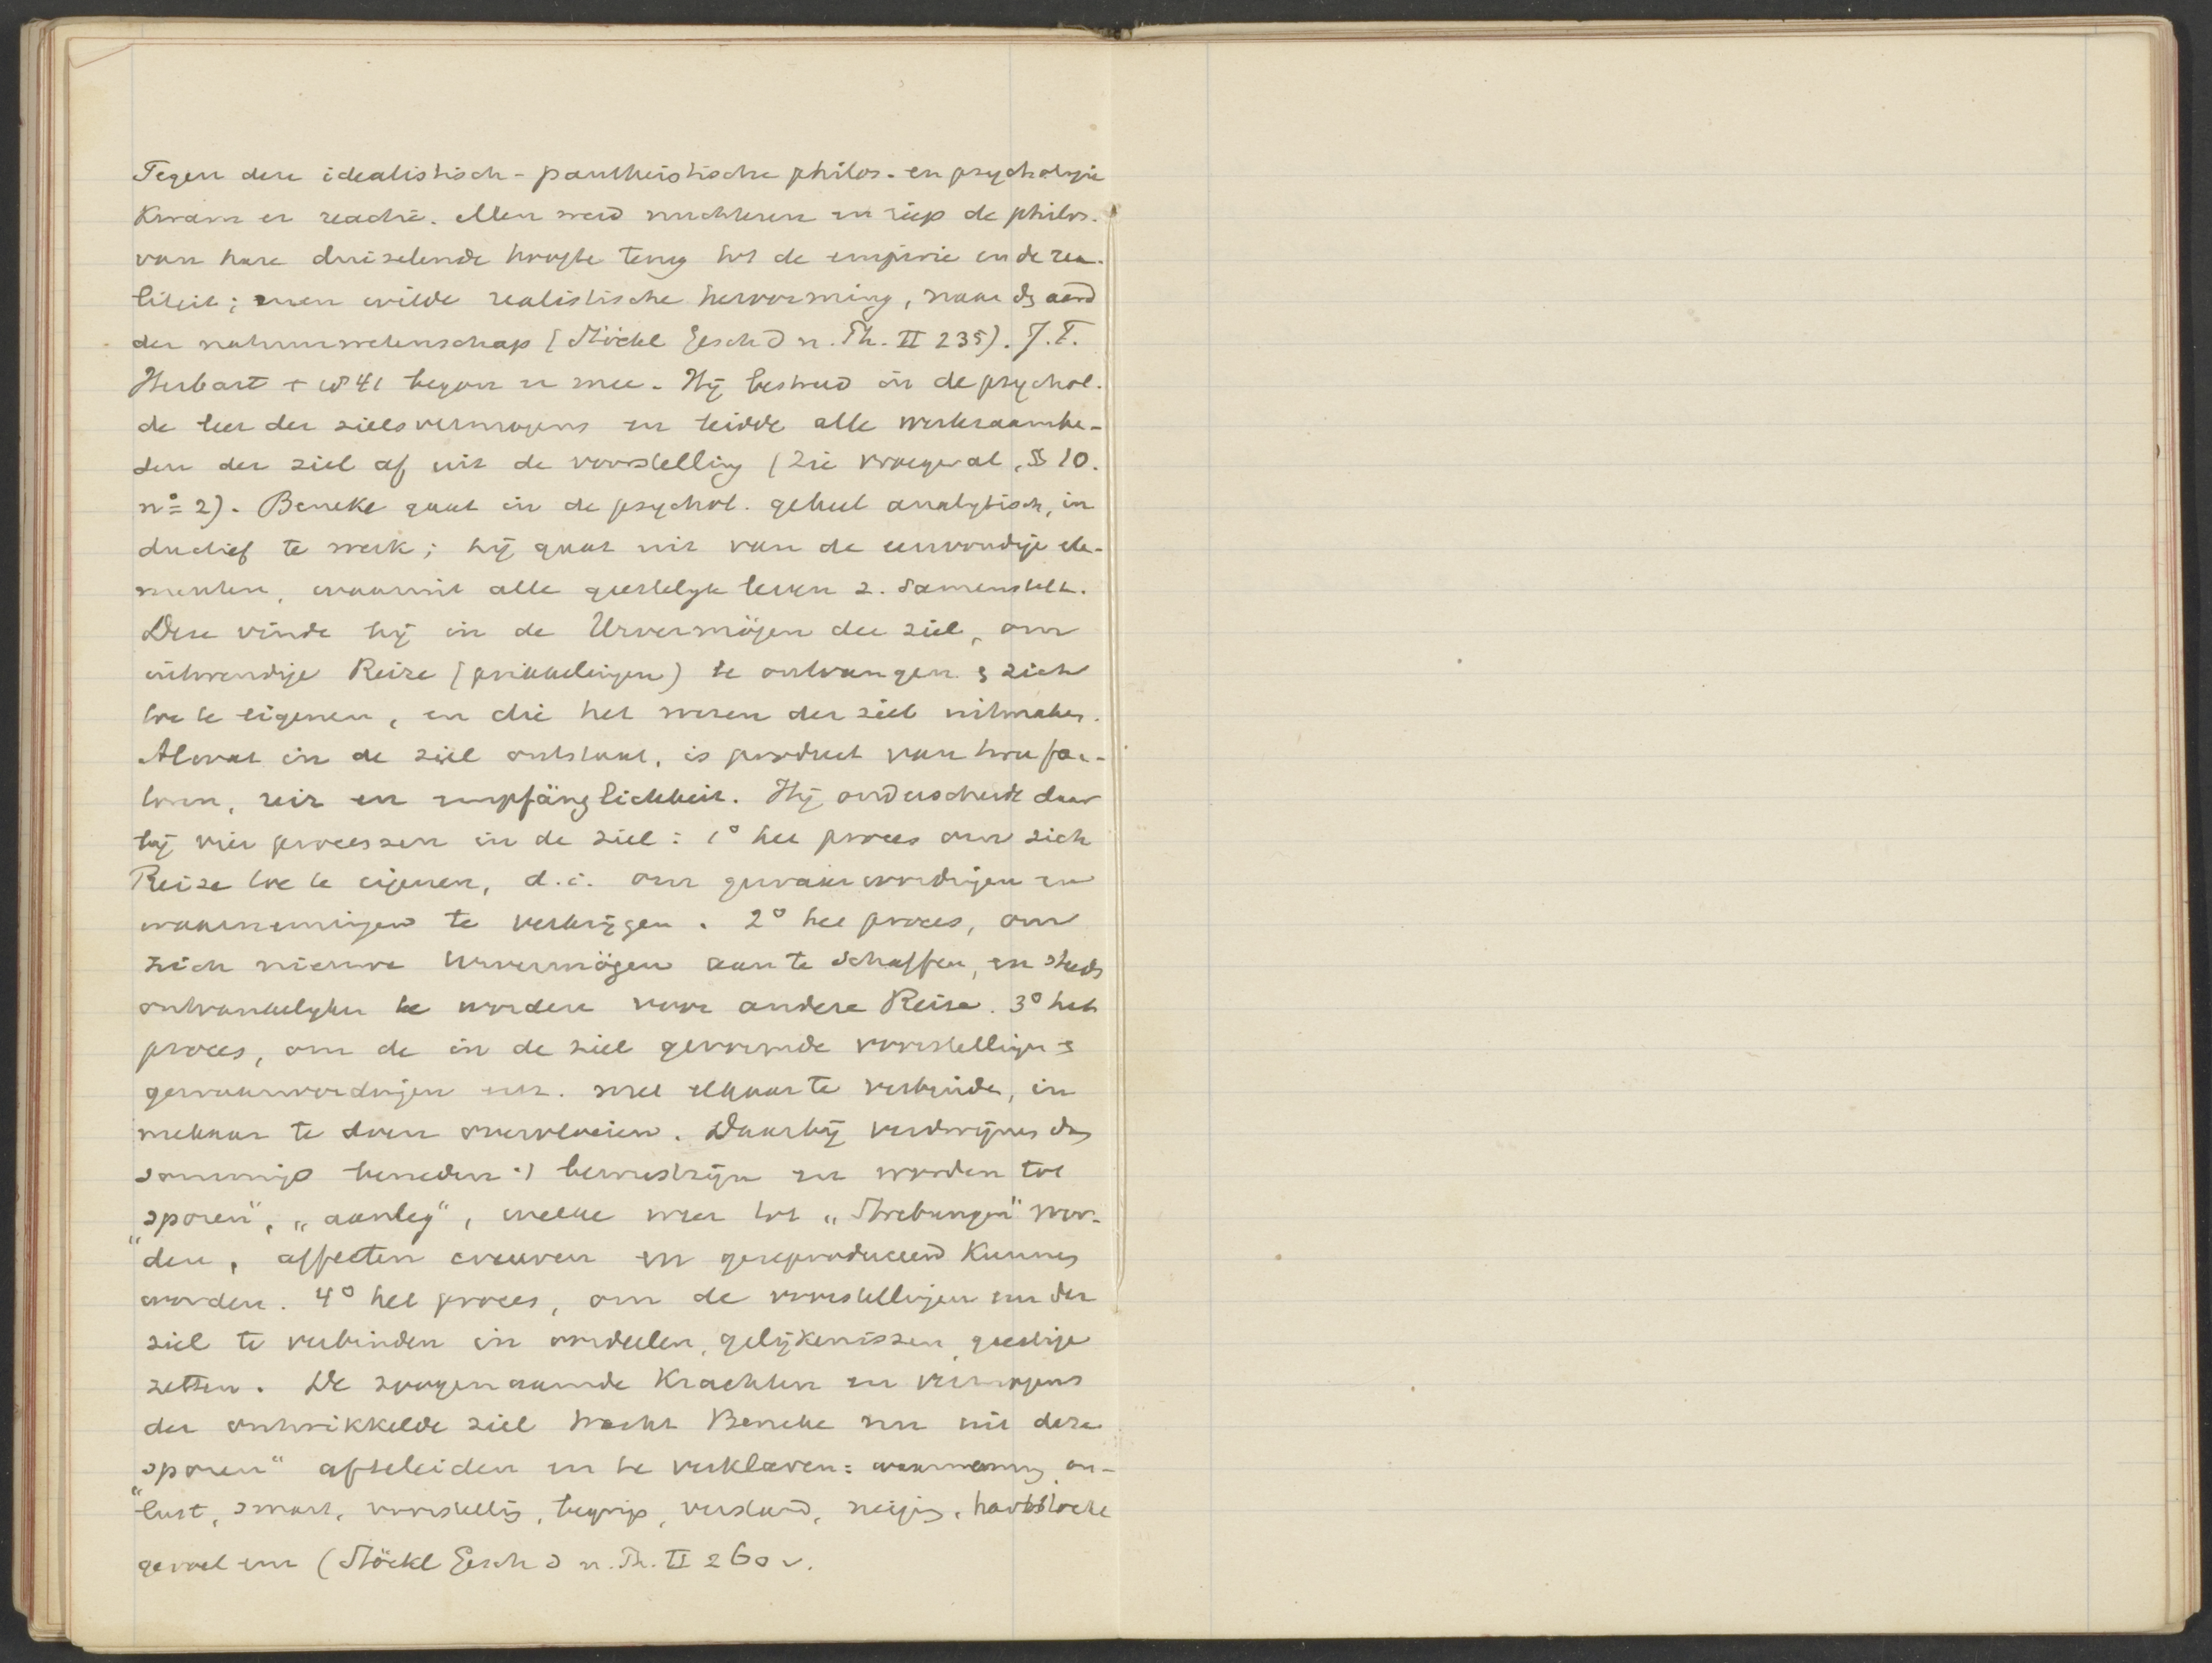 Tegen deze idealistisch-pantheistische philos. en psychologie
kwam er reactie. Men werd nuchteren en riep de philos.
van hare duizelende hoogte terug tot de empirie en de rea-
liteit; men wilde realistische hervorming, naar d. aard
der natuurwetenschap (Stöckl Gesch d n. Ph. II 235). J. F.
Herbart + 1841 begon er mee. Hij bestreed in de psychol.
de leer der zielsvermogens en leidde alle werkzaamhe-
den der ziel af uit de voorstelling (Zie vroeger al, § 10.
no 2). Beneke gaat in de psychol. geheel analytisch, in
ductief te werk; hij gaat uit van de eenvoudige ele-
menten, waaruit alle geestelijk leven z. samenstelt.
Deze vindt hij in de Urvermögen der ziel, om
uitwendige Reize (prikkelingen) te ontvangen & zich
toe te eigenen, en die het wezen der ziel uitmaken.
Alwat in de ziel ontstaat, is product van twee fac-
toren, reiz en empfänglichkeit. Hij onderscheidt daar
bij vier processen in de ziel: 1° het proces om zich
Reize toe te eigenen, d.i. om gewaarwordingen en
waarnemingen te verkrijgen. 2° het proces, om
zich nieuwe Urvermögen aan te schaffen, en steeds
ontvankelijker te worden voor andere Reize. 3° het
proces, om de in de ziel gevormde voorstellingen &
gewaarwordingen enz. met elkaar te verbinden, in
mekaar te doen overvloeien. Daarbij verdwijnen dan
sommige beneden 't bewustzijn en worden tot
„sporen", „aanleg", welke weer tot „Strebungen" wor-
den, affecten en gereproduceerd kunnen
worden. 4° het proces, om de voorstellingen in der
ziel te verbinden in oordeelen, gelijkenissen,
zetten. De zoogenaamde krachten en vermogens
der ontwikkelde ziel tracht Beneke nu uit deze
„sporen" afteleiden en te verklaren: waarneming, on-
lust, smart, voorstelling, begrip, verstand, neiging, hartstocht
gevoel enz (Stöckl Gesch d n. Ph. II 260 v.